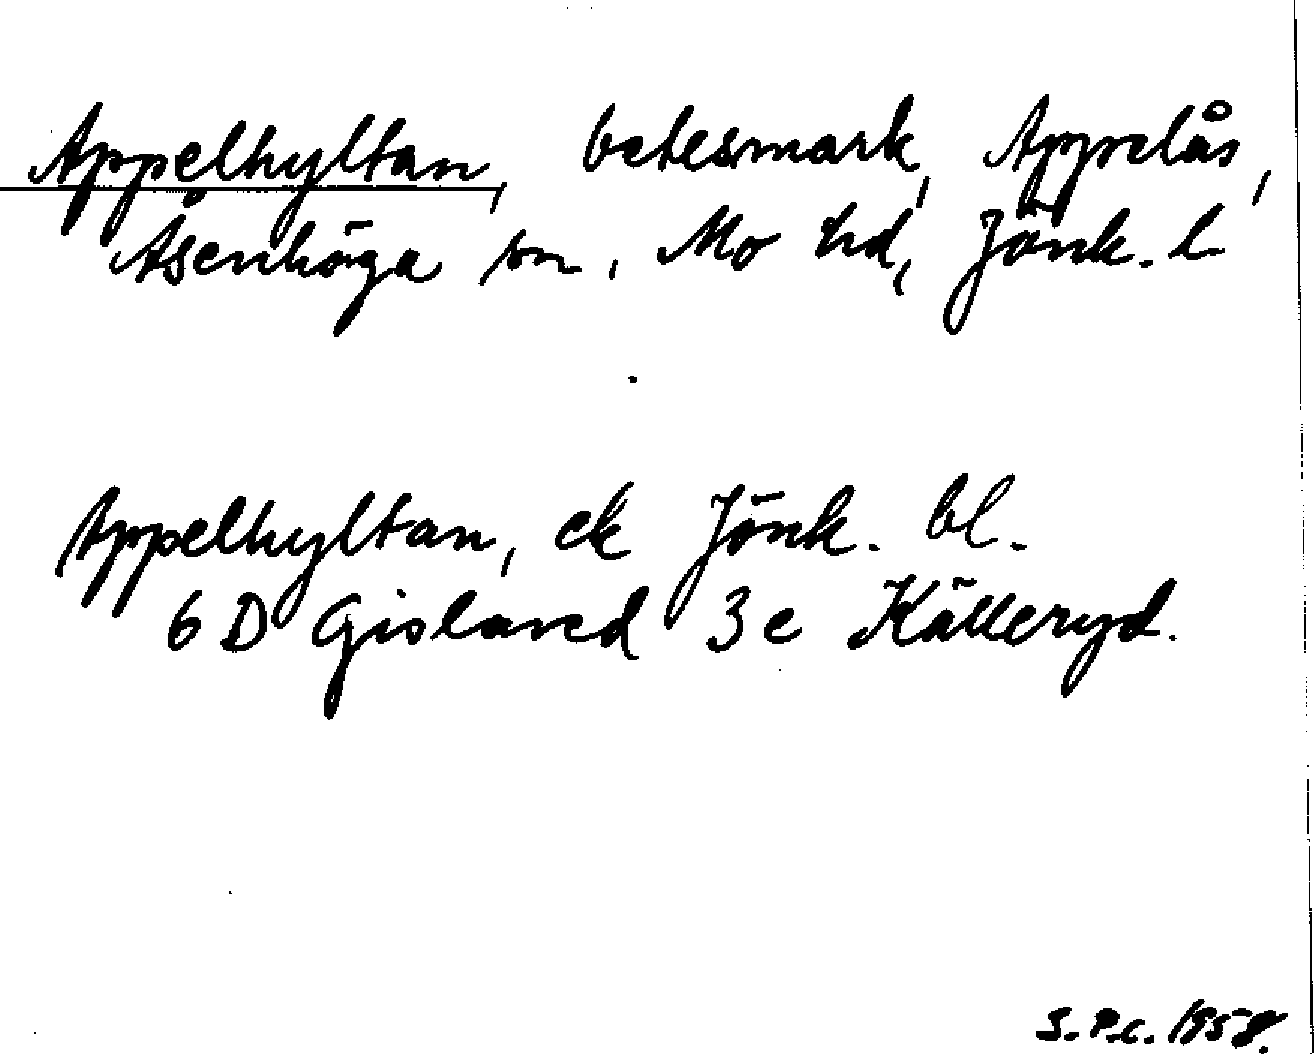 Appelhyltan, betesmark, Appelås,
Åsenhöga sn, Mo hd, Jönk. l
Appelhyltan, ek Jönk. bl.
6 D Gislaved 3 e Källeryd.
S.P.C. 1958.